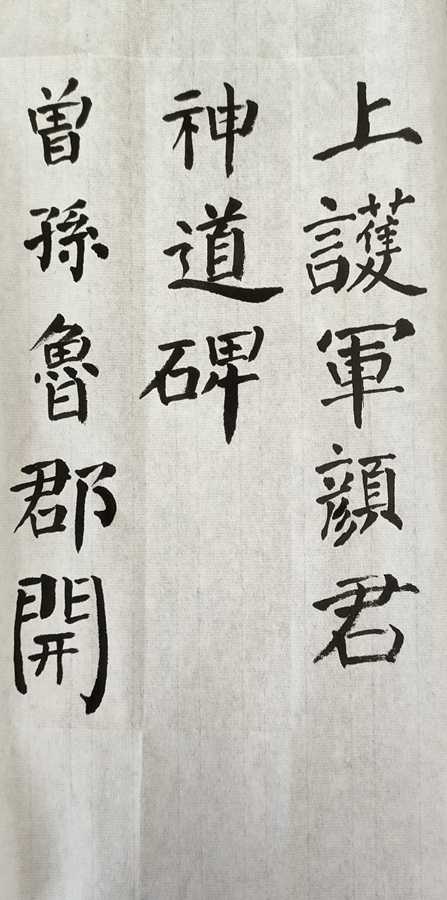 上護軍顔君
神道碑
曾孫魯郡開